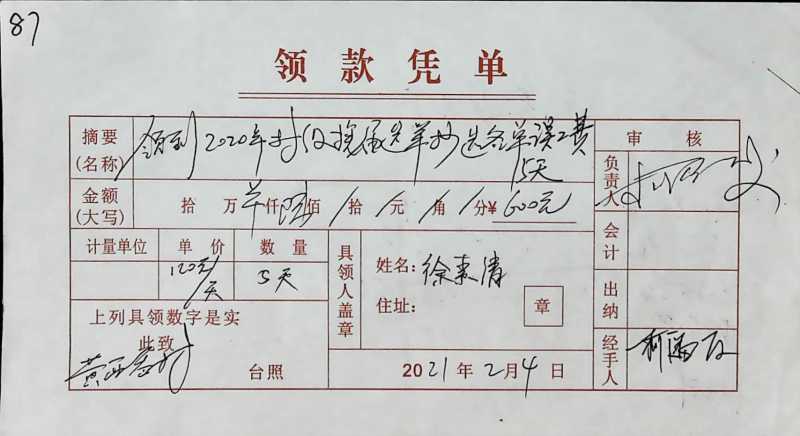 87
领款凭单
摘要(名称) 领到2020年村级换届选举抄选名单误工费
5天
审核
负责人
金额(大写) 拾 万 仟 陆佰 拾 / 元 / 角 / 分¥ 600元
计量单位 单价 数量
120元/天 5天
具领人盖章
姓名: 徐素清
住址:
章
会计
出纳
上列具领数字是实
此致
台照
2021年2月4日
经手人